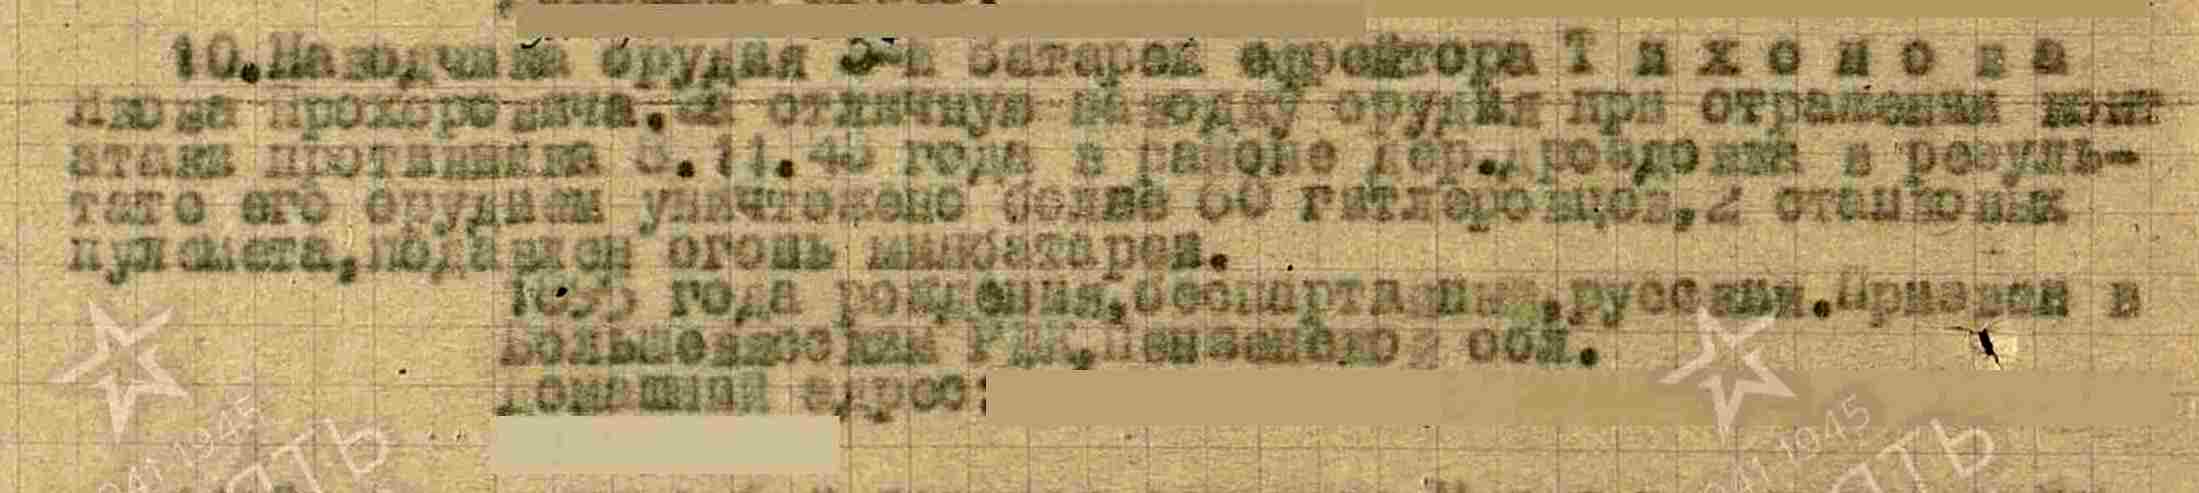 10.Наводчика орудия 3-й батареи ефрейтора Т и х о н о в а
Якова Прохоровича.За отличную наводку орудия при отражении конт
атаки противника 8.11.43 года в районе дер. в резуль-
тате его орудием уничтожено более 60 гитлеровцев,2 станковых
пулемета,подавлен огонь минбатареи.
года рождения,беспартийный,русский.Призван в
РВК,Пензенской обл.
домашний адрес: